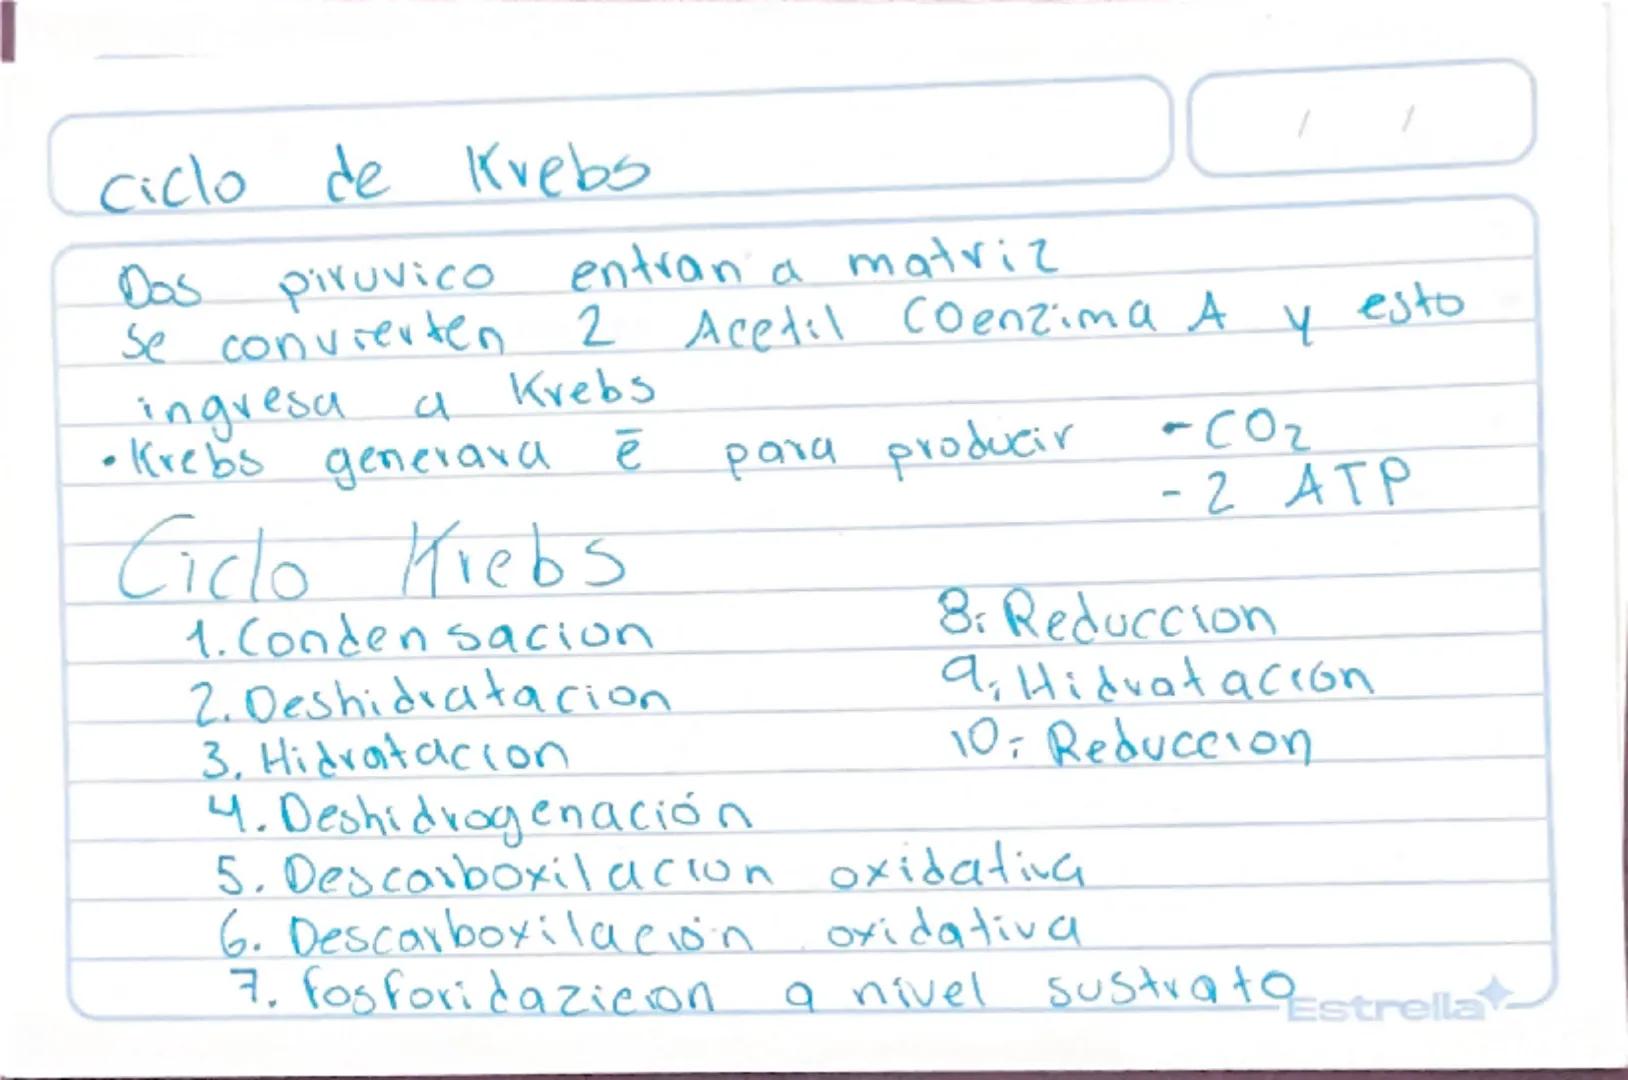 Ciclo de Krebs
/ /
Dos piruvico entran a matriz
se convierten 2 Acetil COenzima A y esto
ingresa a Krebs
• Krebs generara ē para producir - CO2
- 2 ATP
Ciclo Krebs
1. Condensacion
2. Deshidratacion
3. Hidratacion
4. Deshidrogenación
5. Descarboxilacion oxidativa
6. Descarboxilación oxidativa
7. fosforidazicion a nivel sustrato
8: Reduccion
9: Hidratación
10: Reduccion
Estrella